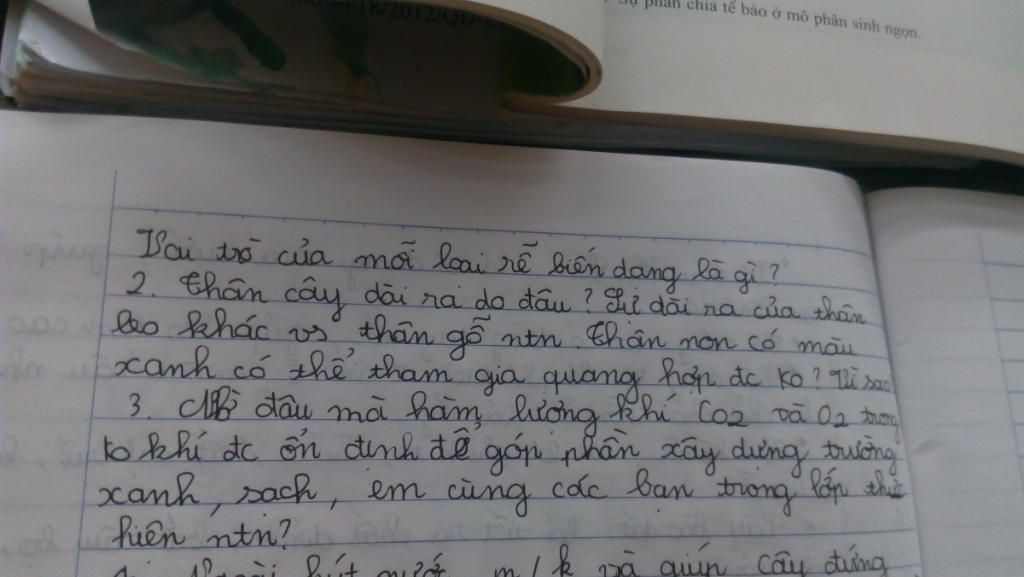 số 18/2012/QĐ-U
Sự phân chia tế bào ở mô phân sinh ngọn.
Vai trò của mỗi loại rễ biến dạng là gì?
2. Thân cây dài ra do đâu? Sự dài ra của thân
leo khác vs thân gỗ ntn Thân non có màu
xanh có thể tham gia quang hợp đc ko? Vì sao
3. Nhờ đâu mà hàm lượng khí CO2 và O2 trong
ko khí đc ổn định để góp phần xây dựng trường
xanh, sạch, em cùng các bạn trong lớp thực
hiện ntn?
hút nước, m/k và giúp cây đứng